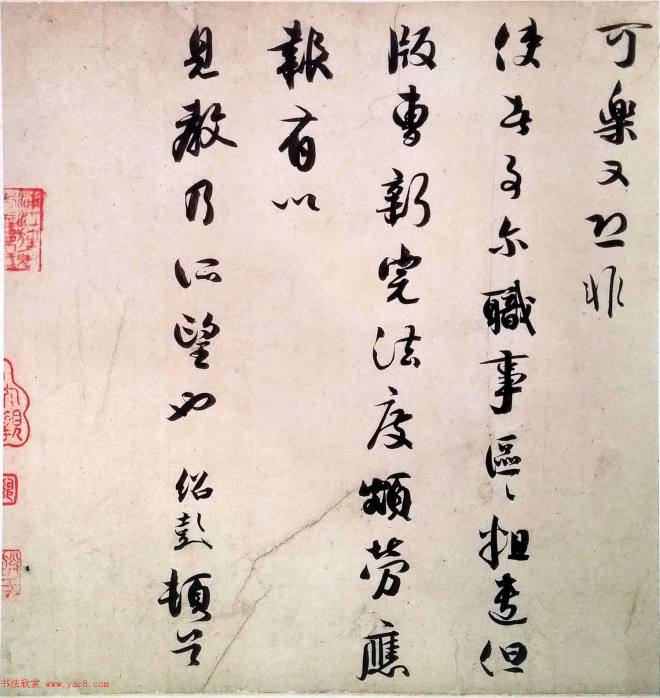 可樂又恐非
使者事尔職事區〻粗遣但
版曹新完法度頗勞應
報有以
見教乃所望也 紹彭頓首
书法欣赏 www.yac8.com